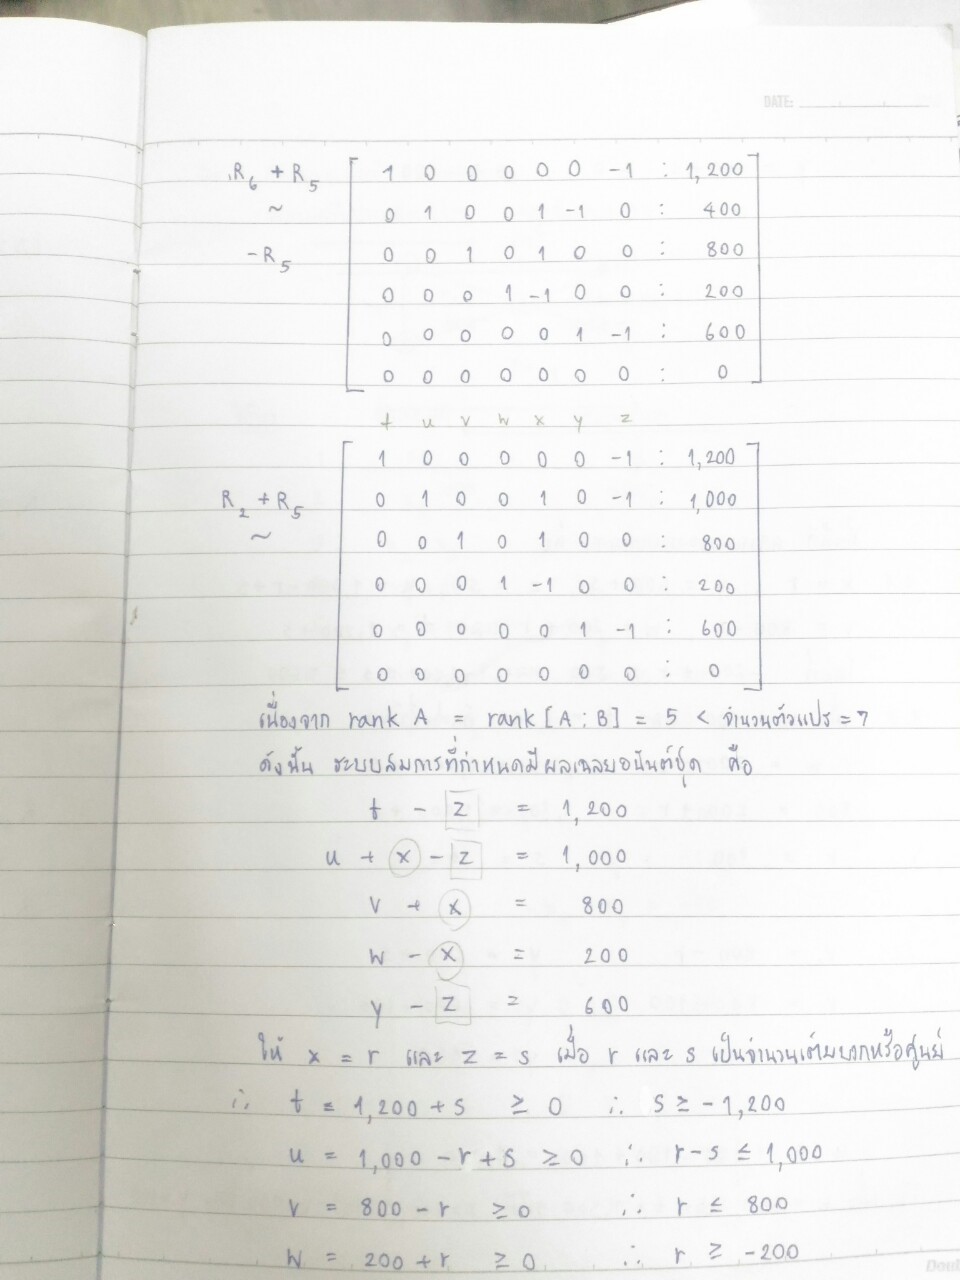 DATE:
R₆ + R₅ 1 0 0 0 0 0 -1 : 1,200
~ 0 1 0 0 1 -1 0 : 400
-R₅ 0 0 1 0 1 0 0 : 800
0 0 0 1 -1 0 0 : 200
0 0 0 0 0 1 -1 : 600
0 0 0 0 0 0 0 : 0
t u v w x y z
1 0 0 0 0 0 -1 : 1,200
R₂ + R₅ 0 1 0 0 1 0 -1 : 1,000
~ 0 0 1 0 1 0 0 : 800
0 0 0 1 -1 0 0 : 200
0 0 0 0 0 1 -1 : 600
0 0 0 0 0 0 0 : 0
เนื่องจาก rank A = rank [A : B] = 5 < จำนวนตัวแปร = 7
ดังนั้น ระบบสมการที่กำหนดมีผลเฉลยอนันต์ชุด คือ
t - z = 1,200
u + x - z = 1,000
v + x = 800
w - x = 200
y - z = 600
ให้ x = r และ z = s เมื่อ r และ s เป็นจำนวนเต็มบวกหรือศูนย์
∴ t = 1,200 + s ≥ 0 ∴ s ≥ -1,200
u = 1,000 - r + s ≥ 0 ∴ r - s ≤ 1,000
v = 800 - r ≥ 0 ∴ r ≤ 800
w = 200 + r ≥ 0 ∴ r ≥ -200